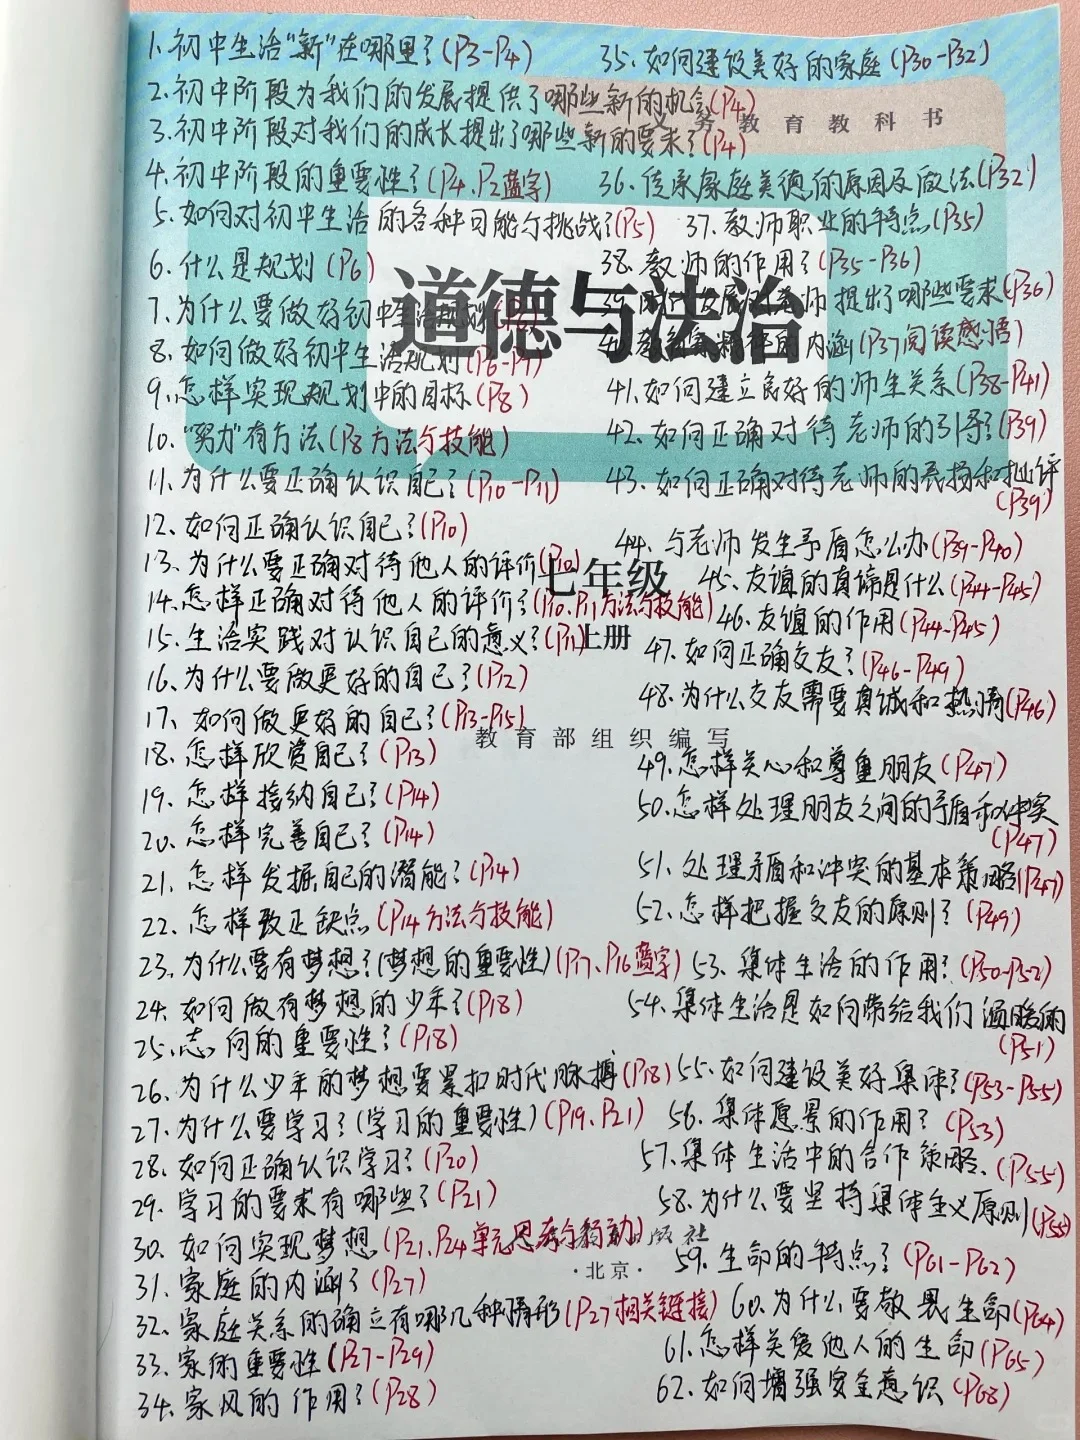 1.初中生活“新”在哪里?(P3-P4)
2.初中阶段为我们的发展提供了哪些新的机会(P4)
3.初中阶段对我们的成长提出了哪些新的要求?(P4)
4.初中阶段的重要性?(P4、P2蓝字)
5.如何对初中生活的各种可能与挑战?(P5)
6.什么是规划(P6)
7.为什么要做好初中生活规划
8.如何做好初中生活规划(P6-P7)
9.怎样实现规划中的目标(P8)
10.“努力”有方法(P8方法与技能)
11.为什么要正确认识自己?(P10-P11)
12.如何正确认识自己?(P10)
13.为什么要正确对待他人的评价(P10)
14.怎样正确对待他人的评价?(P10、P11方法与技能)
15.生活实践对认识自己的意义?(P11)
16.为什么要做更好的自己?(P12)
17.如何做更好的自己?(P13-P15)
18.怎样欣赏自己?(P13)
19.怎样接纳自己?(P14)
20.怎样完善自己?(P14)
21.怎样发掘自己的潜能?(P14)
22.怎样改正缺点(P14方法与技能)
23.为什么要有梦想?(梦想的重要性)(P17、P16蓝字)
24.如何做有梦想的少年?(P18)
25.志向的重要性?(P18)
26.为什么少年的梦想要紧扣时代脉搏(P18)
27.为什么要学习?(学习的重要性)(P19、P21)
28.如何正确认识学习?(P20)
29.学习的要求有哪些?(P21)
30.如何实现梦想(P21、P24单元思考与行动)
31.家庭的内涵?(P27)
32.家庭关系的确立有哪几种情形(P27相关链接)
33.家的重要性(P27-P29)
34.家风的作用?(P28)
35.如何建设美好的家庭(P30-P32)
义务教育教科书
36.传承家庭美德的原因及做法(P32)
37.教师职业的特点(P35)
38.教师的作用?(P35-P36)
39.师提出了哪些要求(P36)
内涵(P37阅读感悟)
41.如何建立良好的师生关系(P38-P41)
42.如何正确对待老师的引导?(P39)
43.如何正确对待老师的表扬和批评
(P39)
44.与老师发生矛盾怎么办(P39-P40)
45.友谊的真谛是什么(P44-P45)
46.友谊的作用(P44-P45)
47.如何正确交友?(P46-P49)
48.为什么交友需要真诚和热情(P46)
49.怎样关心和尊重朋友(P47)
50.怎样处理朋友之间的矛盾和冲突
(P47)
51.处理矛盾和冲突的基本策略(P47)
52.怎样把握交友的原则?(P49)
53.集体生活的作用?(P50-P52)
54.集体生活是如何带给我们温暖的
(P51)
55.如何建设美好集体?(P53-P55)
56.集体愿景的作用?(P53)
57.集体生活中的合作策略.(P55)
58.为什么要坚持集体主义原则(P55)
59.生命的特点?(P61-P62)
60.为什么要敬畏生命(P64)
61.怎样关爱他人的生命(P65)
62.如何增强安全意识(P68)
道德与法治
七年级
上册
教育部组织编写
·北京·